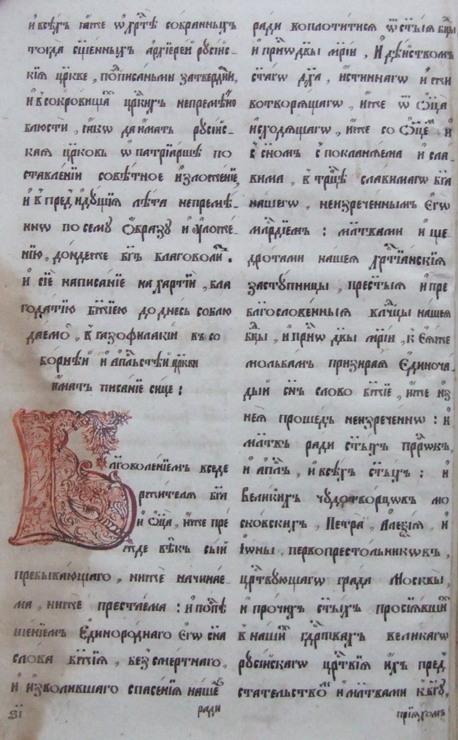 и всѣхъ иже ѡ хр҃тѣ собранныхъ
тогда сщ҃енныхъ архїерей русїис̾
кїя цр҃кве, поⷣписаньми затвердиⷲ,
и въ сокровищаⷯ цр҃киⷯ непремѣнно
блюсти, ꙗкѡ да имать русїис̾
кая цр҃ковь ѡ патрїаршѣ по
ставленїи совѣтное изложенїе,
и в̾ предидꙋщия лѣта непремѣ
ннѡ по семꙋ ѡбразꙋ и ꙋложе
нїю, дондеже бг҃ъ благоволиⷮ.
и сїе написанїе на хартїи, бла
годатїю бж҃їею до днесь соблю
даемо, в̾ газофилакїи въ со
борнѣи и апⷭ҇льстѣи цр҃кви
имать писанїе сице:
Благоволенїемъ вседе
ржителя бг҃а
и ѻц҃а, иже пре
жде вѣкъ сый
пребывающаго, ниже начинае
ма, ниже престаема: и поспѣ
шенїемъ единороднаго егѡ сн҃а
слова бж҃їя, безсмертнаго,
и изволившаго спасенїя нашеⷢ҇
ради
ради воплотитися ѿ ст҃ыя бц҃ы
и прⷭ҇нѡ дв҃ы мр҃їи, и дѣйствомъ
ст҃агѡ дх҃а, истиннагѡ и жи
вотворящагѡ, иже ѿ ѻц҃а
исходящагѡ, иже со ѻц҃емъ и
с̾ сн҃омъ спокланяема и сла
вима, в̾ трⷪ҇цѣ славимагѡ бг҃а
нашегѡ, неизреченнымъ егѡ
млⷭ҇рдїемъ: мл҃твами и ще
дротами нашея хрⷭ҇тїанскїя
заступницы, прест҃ыя и пре
благословенныя влⷣчцы нашея
бц҃ы, и прⷭ҇нѡ дв҃ы мр҃їи, к̾ еяже
мольбамъ призирая единоча
дый сн҃ъ слово бж҃їе, иже из̾
нея прошедъ неизреченнѡ: и
мл҃твъ ради ст҃ыхъ прⷪ҇рѡкъ,
и апⷭ҇лъ, и всѣхъ ст҃ыхъ: и
великихъ чꙋдотворцовъ мо
сковскихъ, Петра, Алеѯїя, и
Іѡны, первопрестольникѡвъ,
црⷭ҇твующагѡ града Москвы,
и прочихъ ст҃ыхъ просїявшиⷯ
в̾ нашиⷯ гдⷭ҇рствахъ великагѡ
русїискагѡ црⷭ҇твїя ихъ пред̾
стательствоⷨ и мл҃твами к̾ бг҃ꙋ,
прїяхомъ